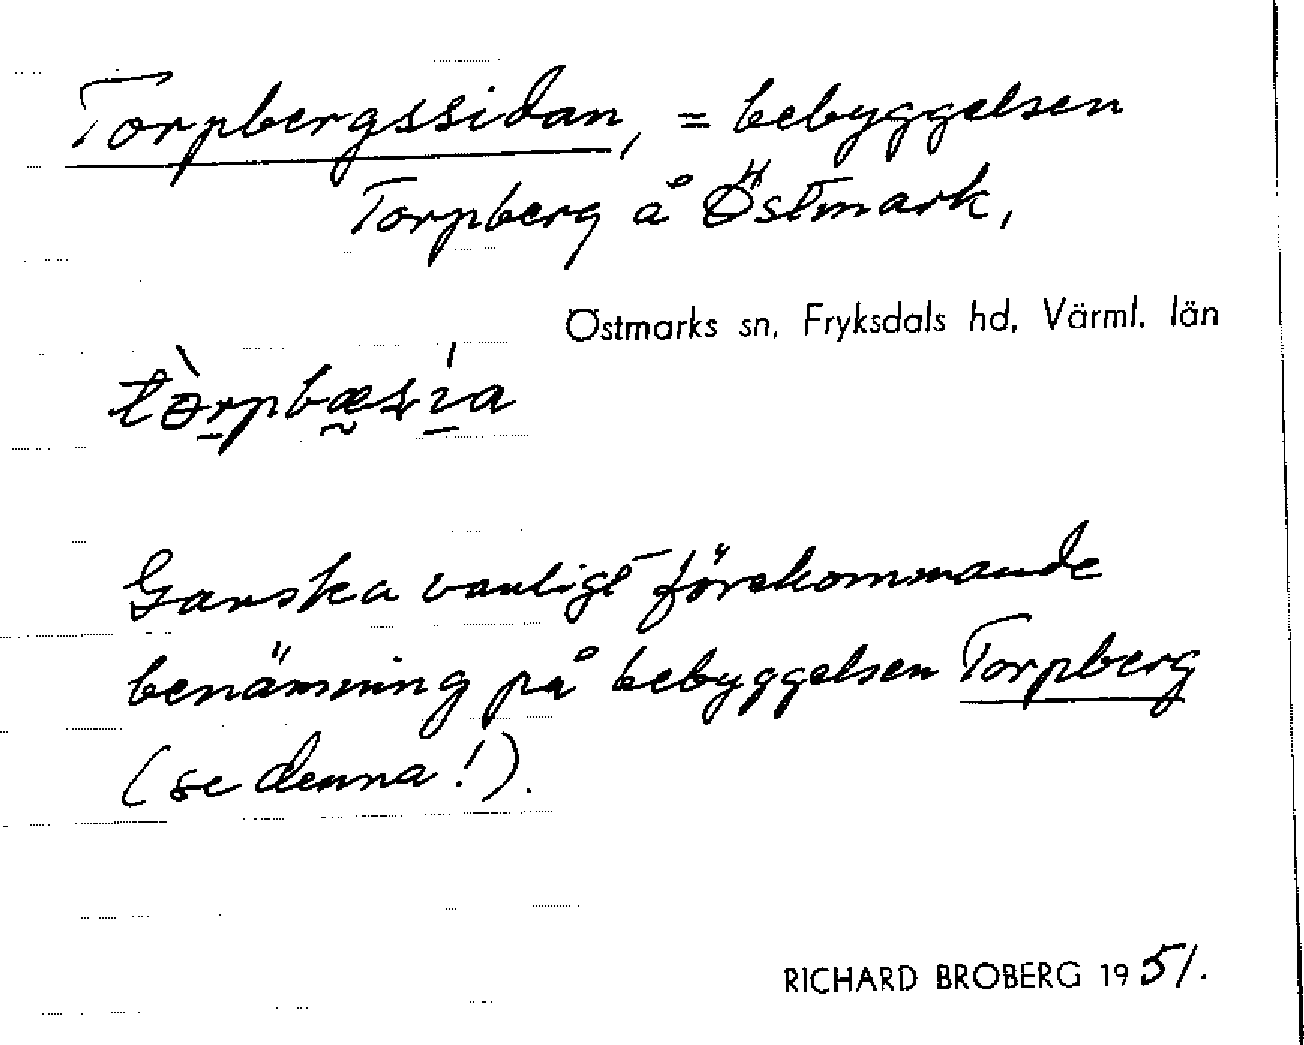 Torpbergssidan, = bebyggelsen
Torpberg å Östmark,
Östmarks sn, Fryksdals hd, Värml. län
Ganska vanligt förekommande
benämning på bebyggelsen Torpberg
(se denna!).
RICHARD BROBERG 1951.